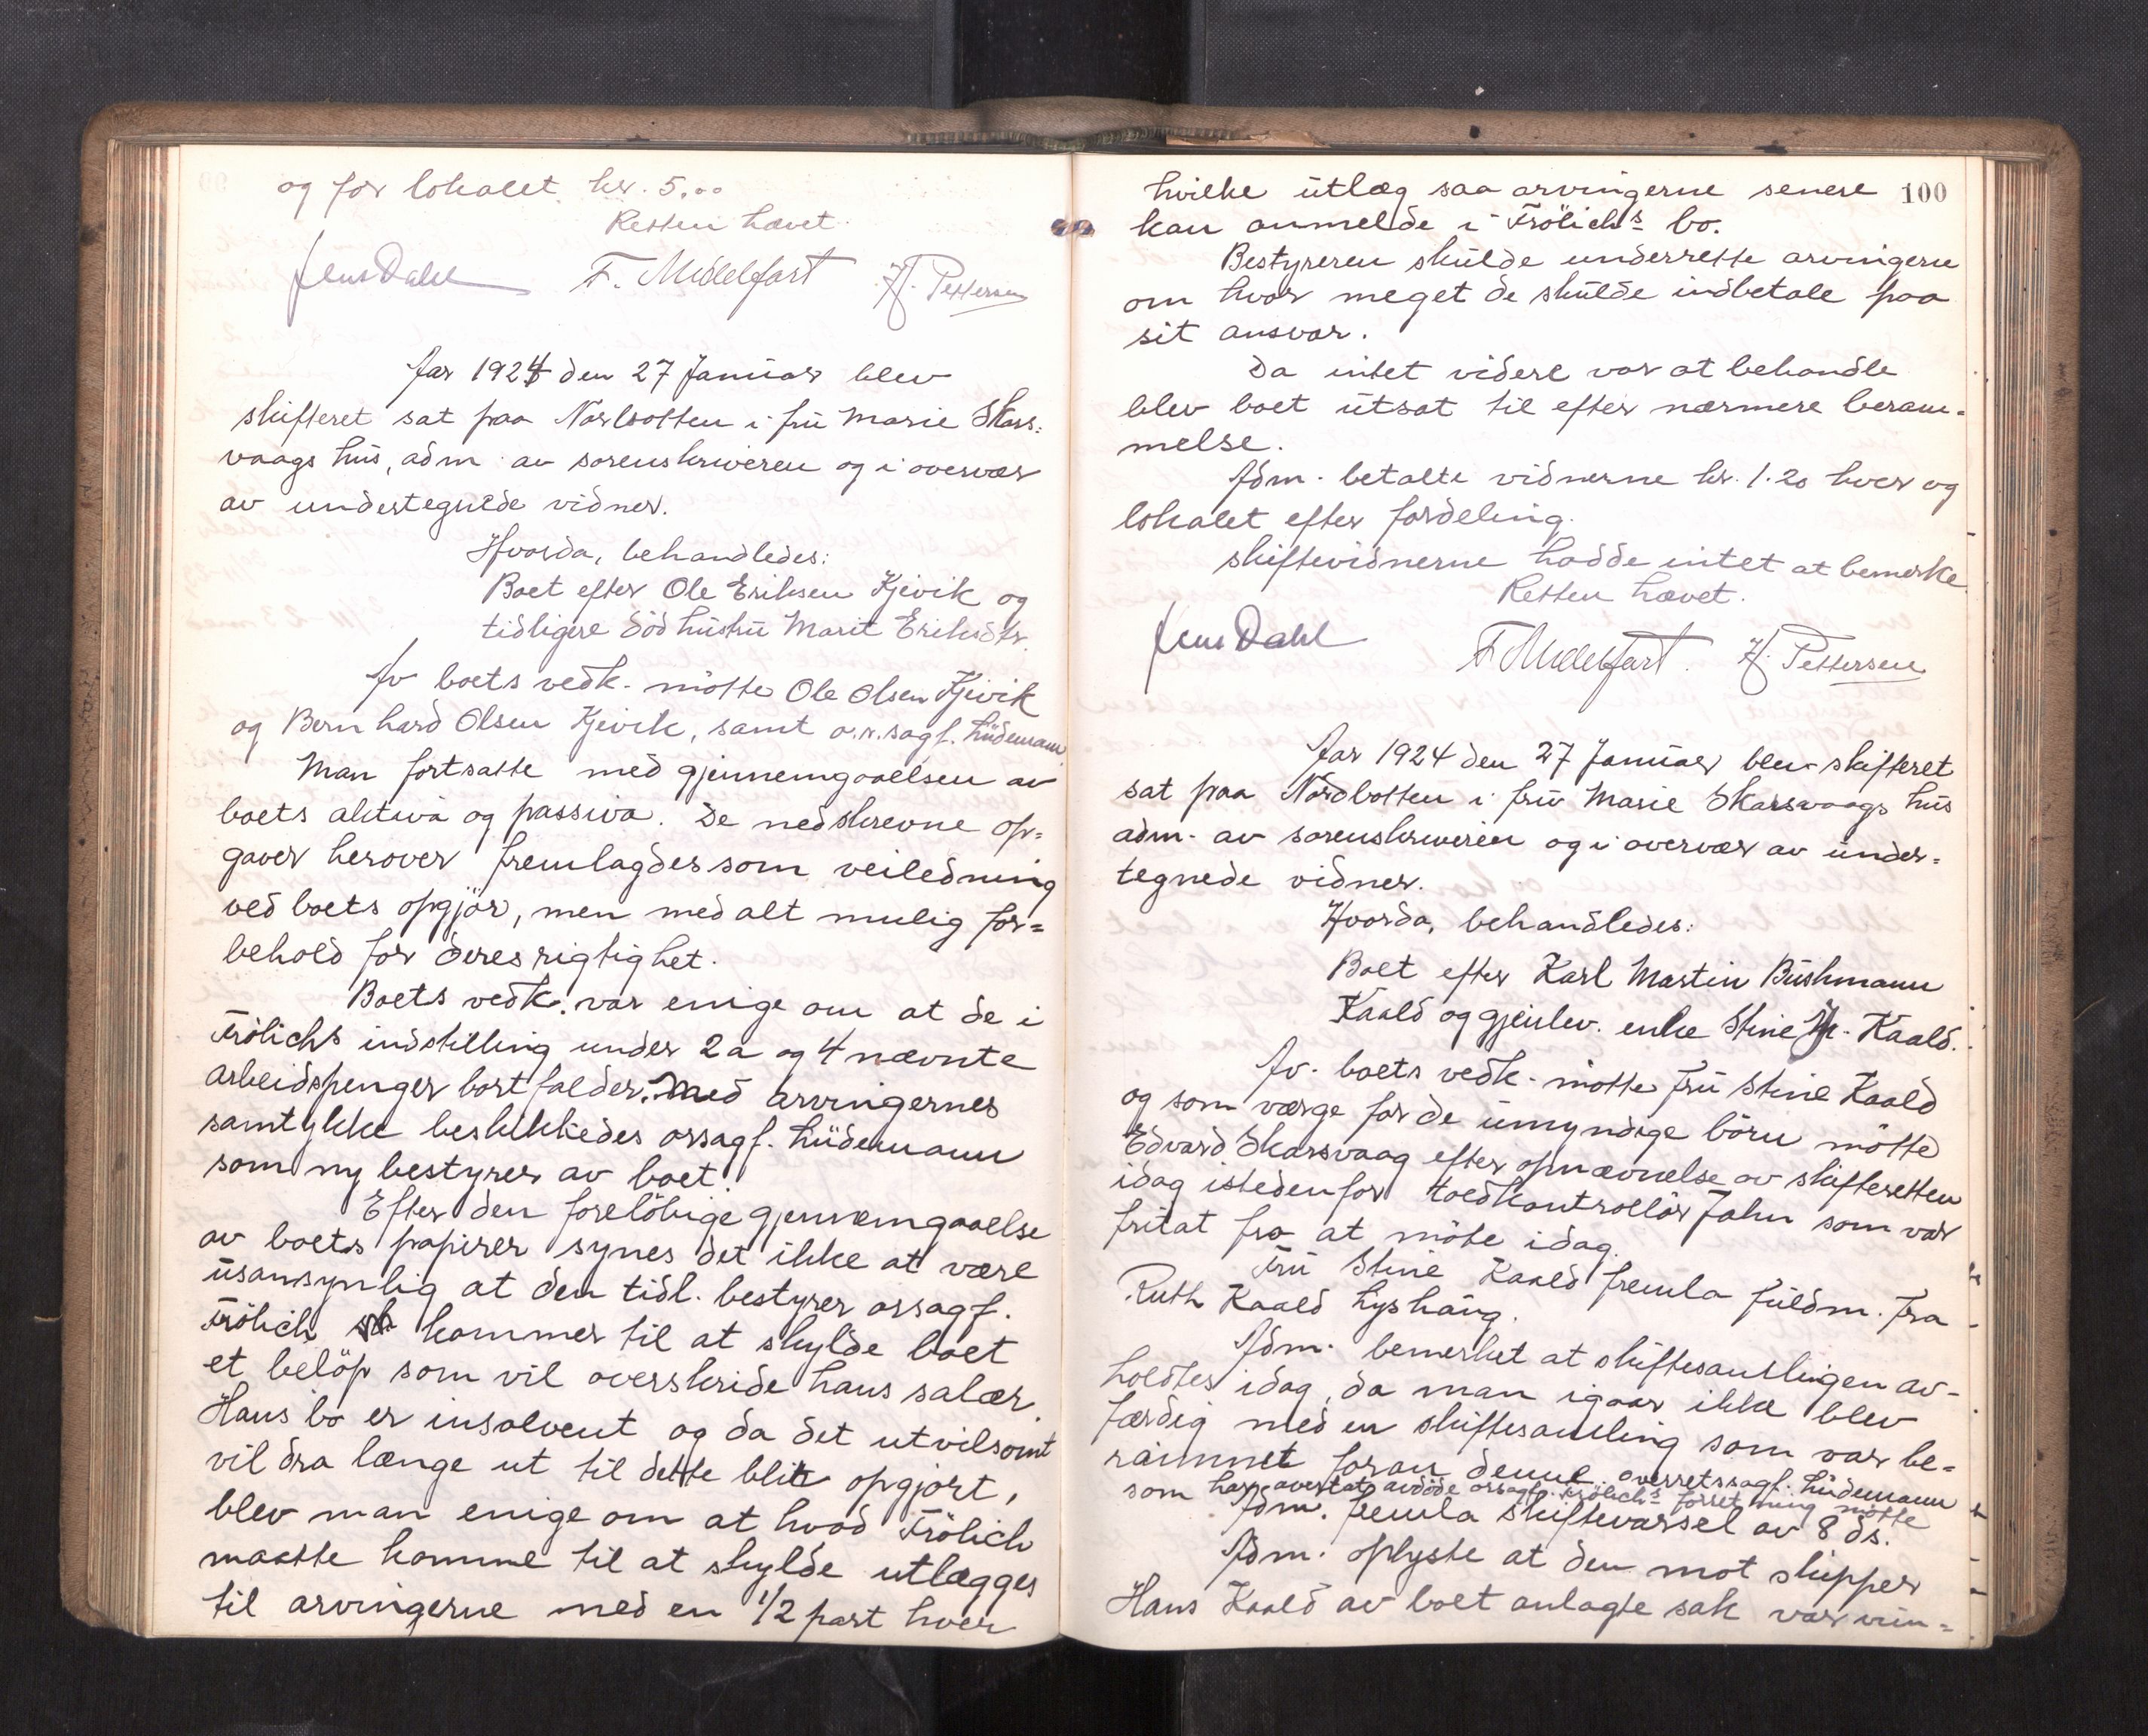 og for lokalet kr. 5.00
Retten hævet.
Jens Dahl F. Midelfart H. Pettersen
Aar 1924 den 27 Januar blev
skifteret sat paa Nordbotten i fru Marie Skars-
vaags hus, adm. av sorenskriveren og i overvær
av undertegnede vidner.
Hvorda, behandledes:
Boet efter Ole Eriksen Kjevik og
tidligere död hustru Marit Eriksdtr.
Av boets vedk. mötte Ole Olsen Kjevik
og Bernhard Olsen Kjevik, samt o.r.sagf. Lüdemann
Man fortsatte med gjennemgaaelsen av
boets aktiva og passiva. De nedskrevne op-
gaver herover fremlagdes som veiledning
ved boets opgjör, men med alt mulig for-
behold for deres rigtighet.
Boets vedk. var enige om at de i
Frölichs indstilling under 2a og 4 nævnte
arbeidspenger bortfalder. Med arvingernes
samtykke beskikkedes orsagf. Lüdemann
som ny bestyrer av boet.
Efter den forelöbige gjennemgaaelse
av boets papirer synes det ikke at være
usansynlig at den tidl. bestyrer orsagf.
Frölich kommer til at skylde boet
et belöp som vil overskride hans salær.
Hans bo er insolvent og da det utvilsomt
vil dra længe ut til dette blir opgjort,
blev man enige om at hvad Frölich
maatte komme til at skylde utlægges
til arvingerne med en 1/2 part hver
100
hvilke utlæg saa arvingerne senere
kan anmelde i Frölichs bo.
Bestyreren skulde underrette arvingerne
om hvor meget de skulde indbetale paa
sit ansvar.
Da intet videre var at behandle
blev boet utsat til efter nærmere beram-
melse.
Adm. betalte vidnerne kr. 1.20 hver og
lokalet efter fordeling.
Skiftevidnerne hadde intet at bemerke
Retten hævet.
Jens Dahl F. Midelfart. H. Pettersen
Aar 1924 den 27 Januar blev skifteret
sat paa Nordbotten i fru Marie Skarsvaags hus
adm. av sorenskriveren og i overvær av under-
tegnede vidner.
Hvorda, behandledes:
Boet efter Karl Martin Bushmann
Kaald og gjenlev. enke Stine Kaald.
Av. boets vedk. mötte Fru Stine Kaald
og som værge for de umyndige börn mötte
Edvard Skarsvaag efter opnævnelse av skifteretten
idag istedenfor toldkontrollör Jahn som var
fritat fra at möte idag.
Fru Stine Kaald fremla fuldm. fra
Ruth Kaald Lyshaug.
Adm. bemerket at skiftesamlingen av-
holdtes idag, da man igaar ikke blev
færdig med en skiftesamling som var be-
rammet foran denne. overretssagf. Lüdemann
som har overtat avdöde orsagf. Frölichs forretning mötte
Adm. fremla skiftevarsel av 8 ds.
Adm. oplyste at den mot skipper
Hans Kaald av boet anlagte sak var vun-